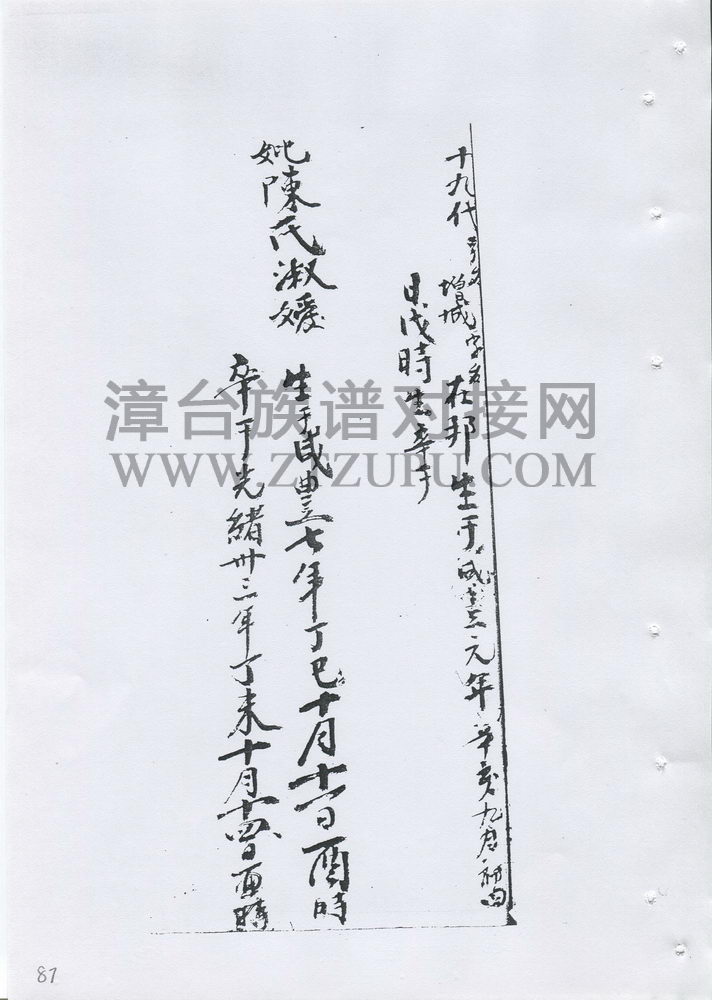 十九代 增城 字名 在邦 生于咸豐元年辛亥九月初四
日戌時生 卒于
妣陳氏淑媛
生于咸豐七年丁巳十月十一日酉時
卒于光緒卅三年丁未十月十四日酉時
漳台族谱对接网
WWW.ZTZUPU.COM
87